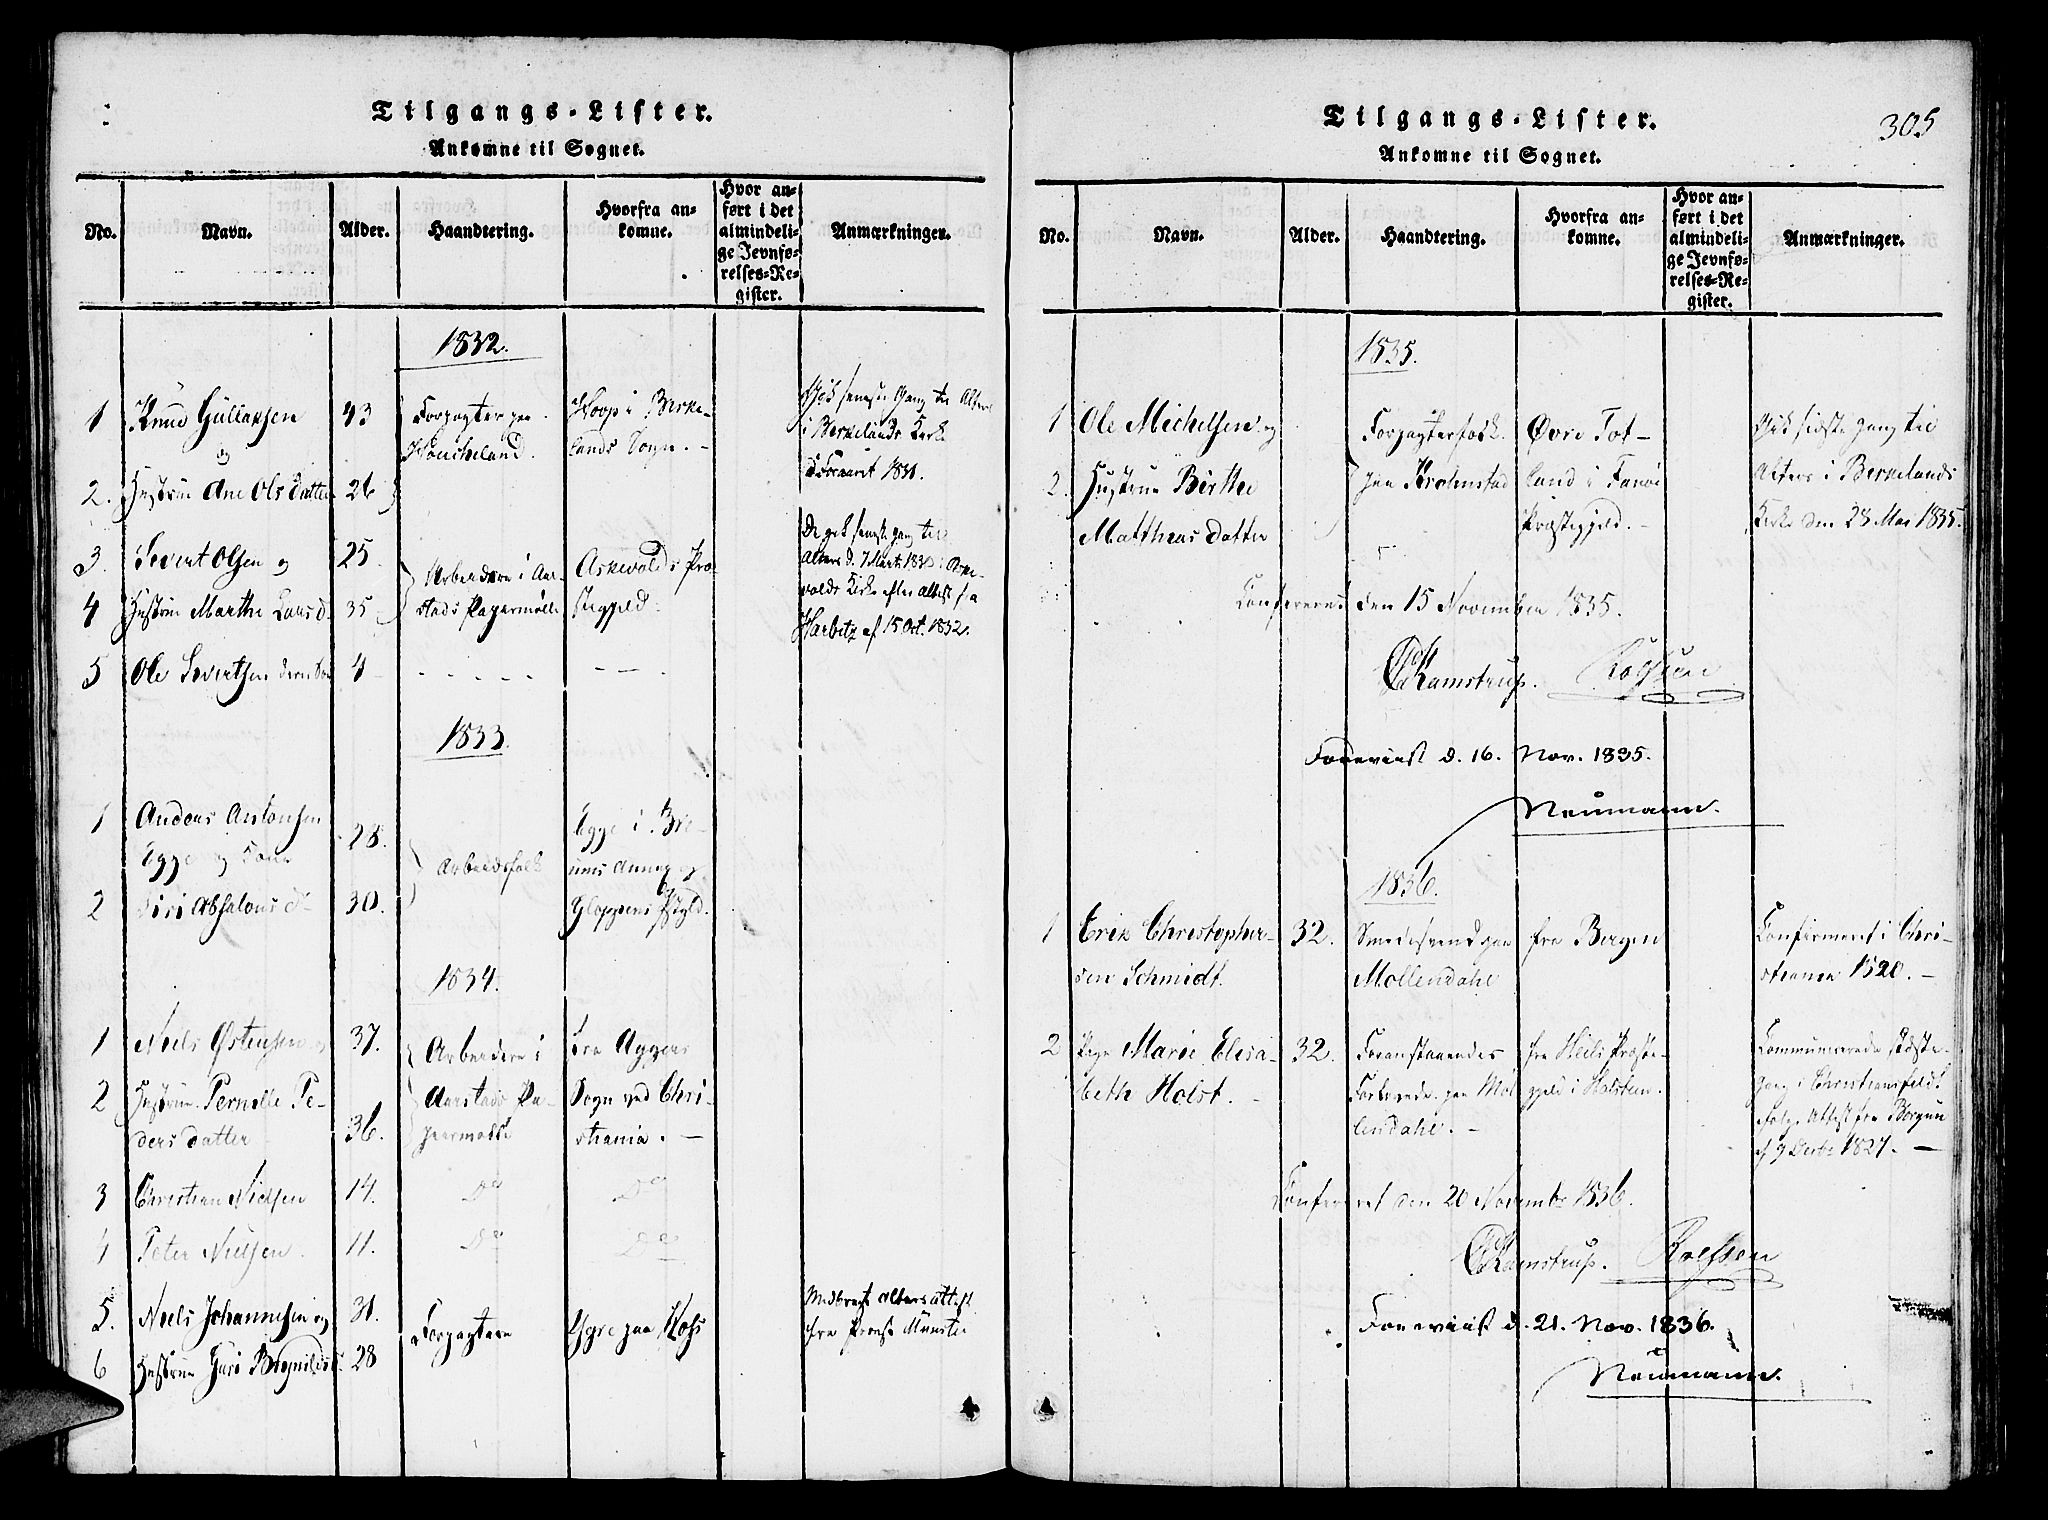 Tilgangs-Lister.
Ankomne til Sognet.
No.
Navn.
Alder.
Haandtering.
Hvorfra an-
komne.
Hvor an-
ført i det
almindeli-
ge Jevnfø-
relses-Re-
gister.
Anmærkninger.
1832.
1
Knud Gullaksen
og
43
Forpagter paa
Houcheland.
Hoop i Birke-
lands Sogn.
Gik seneste Gang til Alters
i Berkelands Kirke
Foraaret 1831.
2. Hustrue Ane Ols Datter 26
3. Severt Olsen og 25
Arbeidere i Aar-
stads Papermølle
Askevolds Præ-
stegjeld.
De gik seneste gang til
Alters d. 7 Marts 1830 i Aske-
volds Kirke efter Attest fra
Harbitz af 15 Oct. 1832.
4 Hustrue Marthe Larsd. 35
5 Ole Severtsen deres Søn 4
1833.
1 Anders Antonsen
Egge og Kone
28.
Arbeidsfolk
Egge i Bre-
ums Annex og
Gloppens Pstgjld.
2 Siri Absalons d 30.
1834.
1 Niels Østensen og 37.
Arbeidere i
Aarstads Pa-
piermølle
fra Aggers
Sogn ved Chri-
stiania.
2 Hustrue Pernille Pe-
ders datter
36.
3 Christian Nielsen 14. Do Do
4 Peter Nielsen. 11. Do Do
5. Niels Johannesen og 31.
Forpagtere
Ygre paa Voss
Medbragt Altersattest
fra Provst Münster
6 Hustrue Guri 28
Tilgangs-Lister.
305
Ankomne til Sognet.
No.
Navn.
Alder.
Haandtering.
Hvorfra an-
komne.
Hvor an-
ført i det
almindeli-
ge Jevnfø-
relses-Re-
gister.
Anmærkninger.
1835.
1 Ole Michelsen og
Forpagterfolk
paa Kronstad
Øvre Tot-
land i Fanøe
Præstegjeld.
Gik sidste gang til
Alters i Berkelands
Kirke den 28 Mai 1835.
2. Hustrue Birthe
Matthias datter
Confereret den 15 November 1835.
Ramstrup. Rolfsen
Foreviist d. 16. Nov. 1835.
Neumann.
1836.
1 Erik Christopher-
sen Schmidt.
32.
Smedesvend paa
Møllendahl
fra Bergen
Confirmeret i Chri-
stiania 1820.
2 Pige Marie Elisa-
beth Holst.
32.
Foranstaaendes
Forlovede paa Møl
lendahl.
fra Heils Præste-
gjeld i Holsteen.
Communicerede sidste
Gang i Christiansfeldt
ifølge Attest fra Bergen
af 9 Decbr 1827.
Confereret den 20 Novembr 1836.
Ramstrup. Rolfsen
Foreviist d. 21. Nov. 1836.
Neumann.